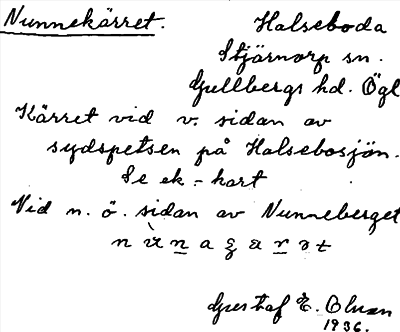 Nunnekärret. Halseboda
Stjärnorp sn.
Gullbergs hd. Ögl
Kärret vid v. sidan av
sydspetsen på Halsebosjön.
Se ek.-kart
Vid n. ö. sidan av Nunneberget
Gustaf E. Olsson
1936.